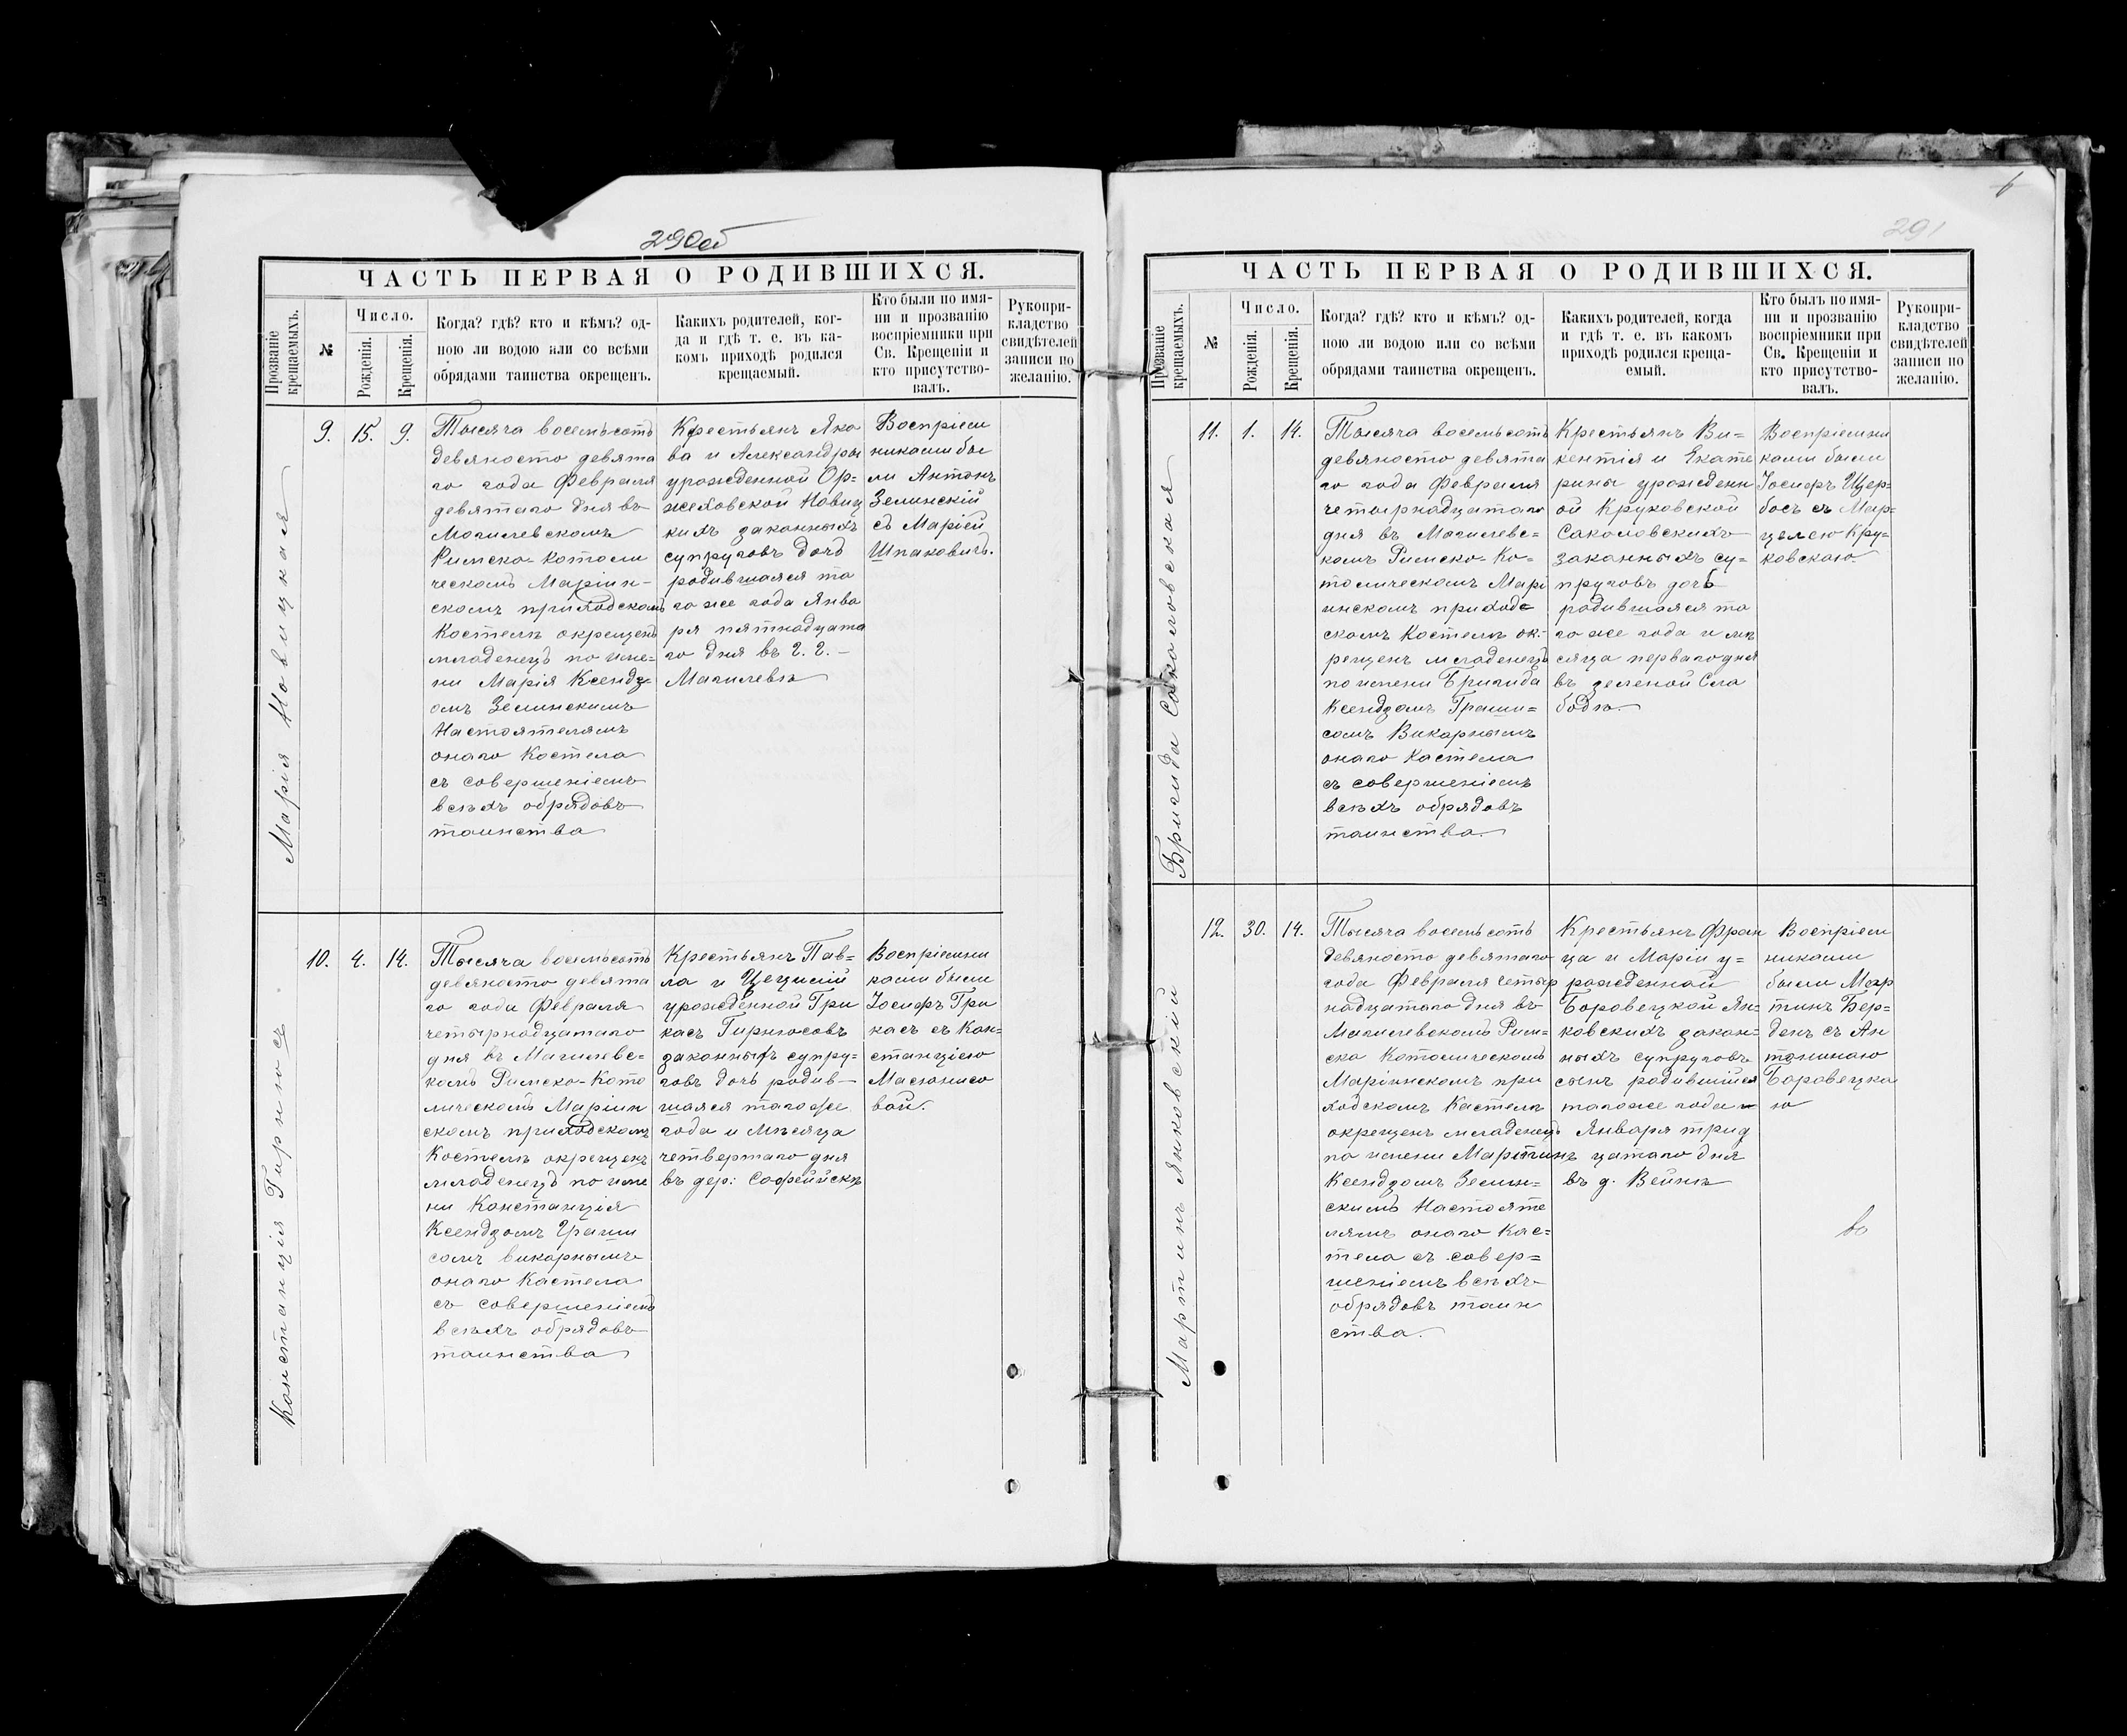 290об
ЧАСТЬ ПЕРВАЯ О РОДИВШИХСЯ.
Прозваніе
крещаемыхъ.
№
Число.
Рожденія.
Крещенія.
Когда? гдѣ? кто и кѣмъ? од-
ною ли водою или со всѣми
обрядами таинства окрещенъ.
Какихъ родителей, ког-
да и гдѣ т. е. въ ка-
комъ приходѣ родился
крещаемый.
Кто были по имя-
ни и прозванію
воспріемники при
Св. Крещеніи и
кто присутство-
валъ.
Рукопри-
кладство
свидѣтелей
записи по
желанію.
Марія Новицкая
9.
15.
9.
Тысяча восемьсотъ
девяносто девята
го года Февраля
девятаго дня въ
Могилевскомъ
Римско-котоли
ческомъ Маріин-
скомъ приходскомъ
Костелѣ окрещенъ
младенецъ по име=
ни Марія Ксендз=
омъ Зелинскимъ
Настоятелямъ
онаго Костела
съ совершеніемъ
всѣхъ обрядовъ
таинства
Крестьянъ Яко
ва и Александры
урожденной Ор=
жеховской Новиц
кихъ законныхъ
супруговъ дочь
родившаяся то
го же года Янва
ря пятнадцата
го дня въ г. г.-
Могилевѣ
Воспріем
никами бы
ли Антонъ
Зелинскій
съ Маріей
Шпаковичъ.
Констанція Гирнюсъ
10.
4.
14.
Тысяча восемьсотъ
девяносто девята
го года Февраля
четырнадцатаго
дня въ Магилевс-
комъ Римско-Като
лическомъ Маріин
скомъ приходскомъ
Костелѣ окрещенъ
младенецъ по име
ни Констанція
Ксендзомъ Граши
сомъ викарнымъ
онаго Кастела
съ совершеніемъ
всѣхъ обрядовъ
таинства
Крестьянъ Пав=
ла и Цецилій
урожденной Гри
касъ Гирнюсовъ
законныхъ супру=
говъ дочь родив-
шаяся тогоже
года и мѣсяца
четвертаго дня
въ дер: Софеййскѣ
Воспріемни
ками были
Іосифъ Гри
касъ съ Кон=
станціею
Масюлисо
вой.
6
291
ЧАСТЬ ПЕРВАЯ О РОДИВШИХСЯ.
Прозваніе
крещаемыхъ.
№
Число.
Рожденія.
Крещенія.
Когда? гдѣ? кто и кѣмъ? од-
ною ли водою или со всѣми
обрядами таинства окрещенъ.
Какихъ родителей, когда
и гдѣ т. е. въ какомъ
приходѣ родился креща-
емый.
Кто былъ по имя-
ни и прозванію
воспріемники при
Св. Крещеніи и
кто присутство-
валъ.
Рукопри-
кладство
свидѣтелей
записи по
желанію.
Бригида Соколовская
11.
1.
14.
Тысяча восемьсотъ
девяносто девята
го года Февраля
четырнадцатаго
дня въ Магилевс=
комъ Римско-Ко=
толическомъ Марі
инскомъ приходс
скомъ Костелѣ ок=
рещенъ младенецъ
по имени Бригида
Ксендзомъ Граши=
сомъ Викарнымъ
онаго Кастела
съ совершеніемъ
всѣхъ обрядовъ
таинства.
Крестьянъ Ви=
кентія и Екате
рины урожденн
ой Круковской
Сакаловскихъ
законныхъ су=
пруговъ дочь
родившаяся то
го же года и мѣ
сяца перваго дня
въ зеленой Сла
бодѣ.
Воспріемни
ками были
Іосифъ Щер=
босъ съ Мар=
целею Кру=
ковскою.
Мартинъ Янковскій
12.
30.
14.
Тысяча восемьсотъ
девяносто девятаго
года Февраля четыр
надцатаго дня въ
Магилевскомъ Рим=
ско Котолическомъ
Маріинскомъ при
ходскомъ Кастелѣ
окрещенъ младенецъ
по имени Мартинъ
Ксендзомъ Зелин=
скимъ Настояте
лямъ онаго Кос=
тела съ совер=
шеніемъ всѣхъ
обрядовъ таин
ства.
Крестьянъ Фран
ца и Маріи у=
рожденной
Боровецкой Ян=
ковскихъ закон=
ныхъ супруговъ
сынъ родившійся
тогоже года
Января трид
цатаго дня
въ д. Вейнѣ
Воспріем
никами
были Мар
тинъ Бер=
денъ съ Ан
тониною
Боровецко
ю
во